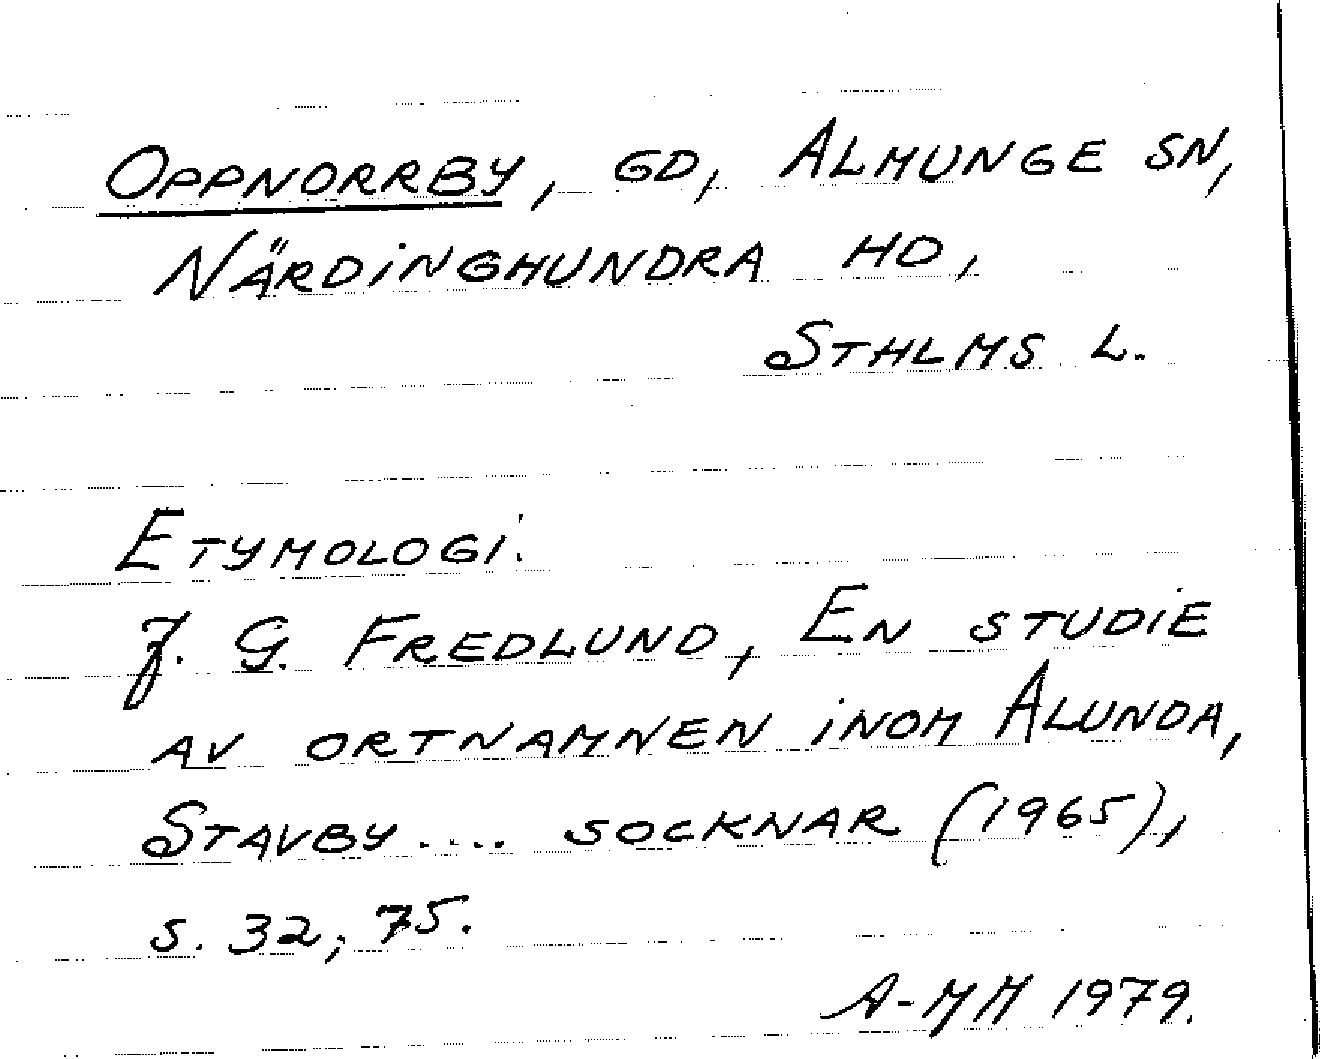 OPPNORRBY, GD, ALMUNGE SN,
NÄRDINGHUNDRA HD,
STHLMS L.
ETYMOLOGI:
J. G. FREDLUND, EN STUDIE
AV ORTNAMNEN INOM ALUNDA,
STAVBY .... SOCKNAR (1965),
S. 32, 75.
A-MM 1979.